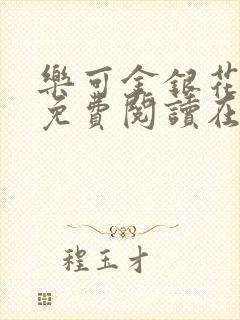 樂可金銀花
免費閱讀在
程玉才